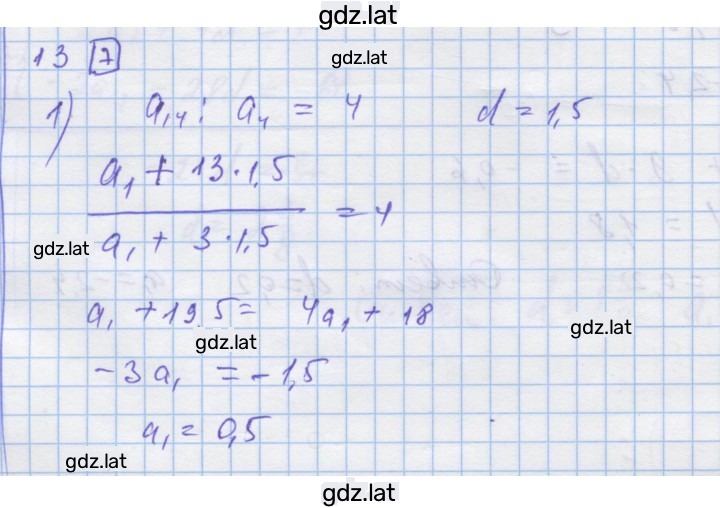 gdz.lat
13 7
gdz.lat
1) a14 : a4 = 4 d = 1,5
a1 + 13·1,5
= 4
gdz.lat a1 + 3·1,5
a1 + 19,5 = 4a1 + 18
gdz.lat
gdz.lat
-3a1 = -1,5
a1 = 0,5
gdz.lat
gdz.lat